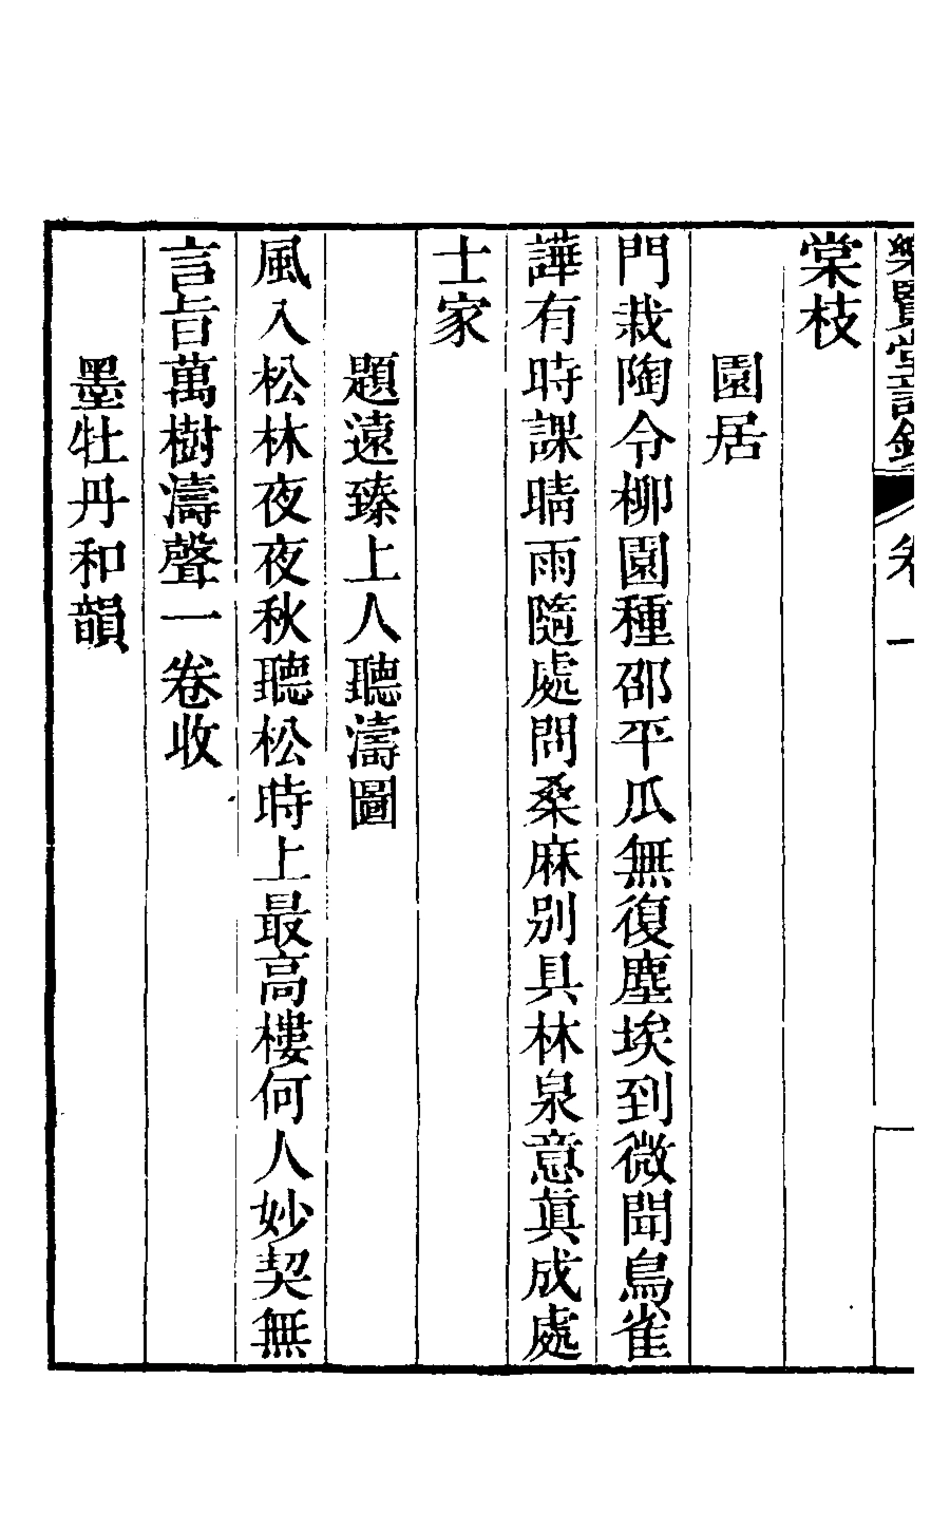 樂賢堂詩鈔 卷一
棠枝
園居
門栽陶令柳園種邵平瓜無復塵埃到微聞鳥雀
譁有時課晴雨隨處問桑麻別具林泉意眞成處
士家
題遠臻上人聽濤圖
風入松林夜夜秋聽松時上最高樓何人妙契無
言旨萬樹濤聲一卷收
墨牡丹和韻